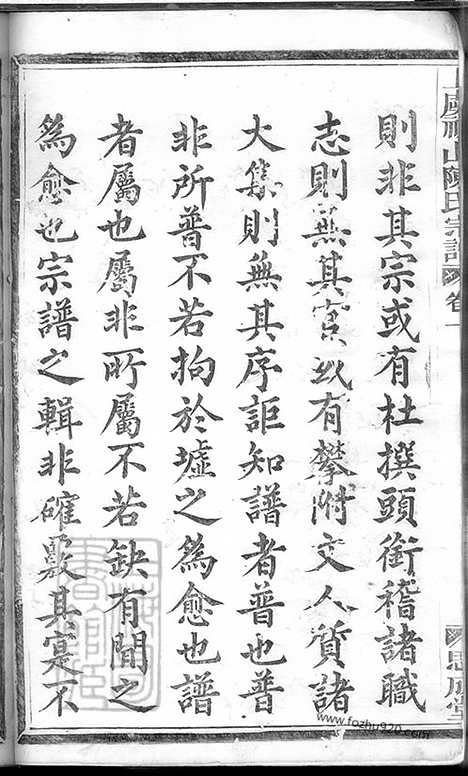 則非其宗或有杜撰頭銜稽諸職
志則無其實及有攀附文人質諸
大集則無其序詎知譜者普也普
非所普不若拘於墟之為愈也譜
者屬也屬非所屬不若缺有間之
為愈也宗譜之輯非確覈其寔不
氏宗譜
卷一
思成堂
www.fozhu920.com